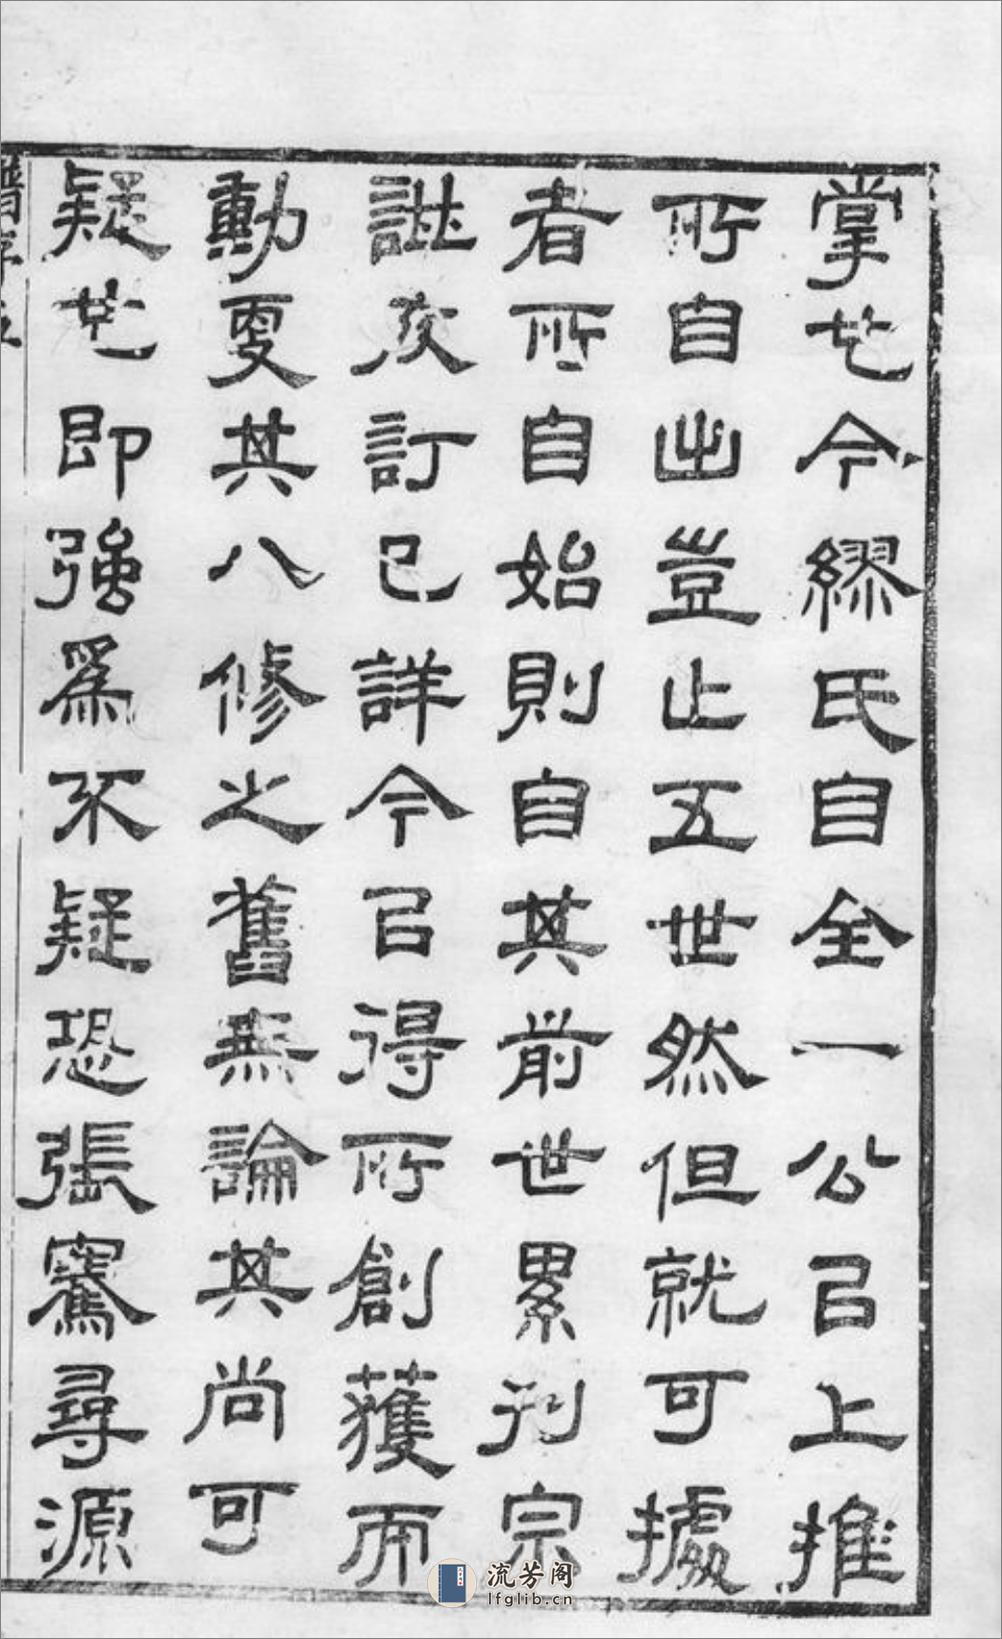 掌也今繆氏自全一公㠯上推
所自出豈止五世然但就可據
者所自始則自其前世累刊宗
諜亥訂已詳今㠯得所創獲而
動更其八修之舊無論其尚可
疑也即強為不疑恐張騫尋源
譜序
流芳阁
lfglib.cn